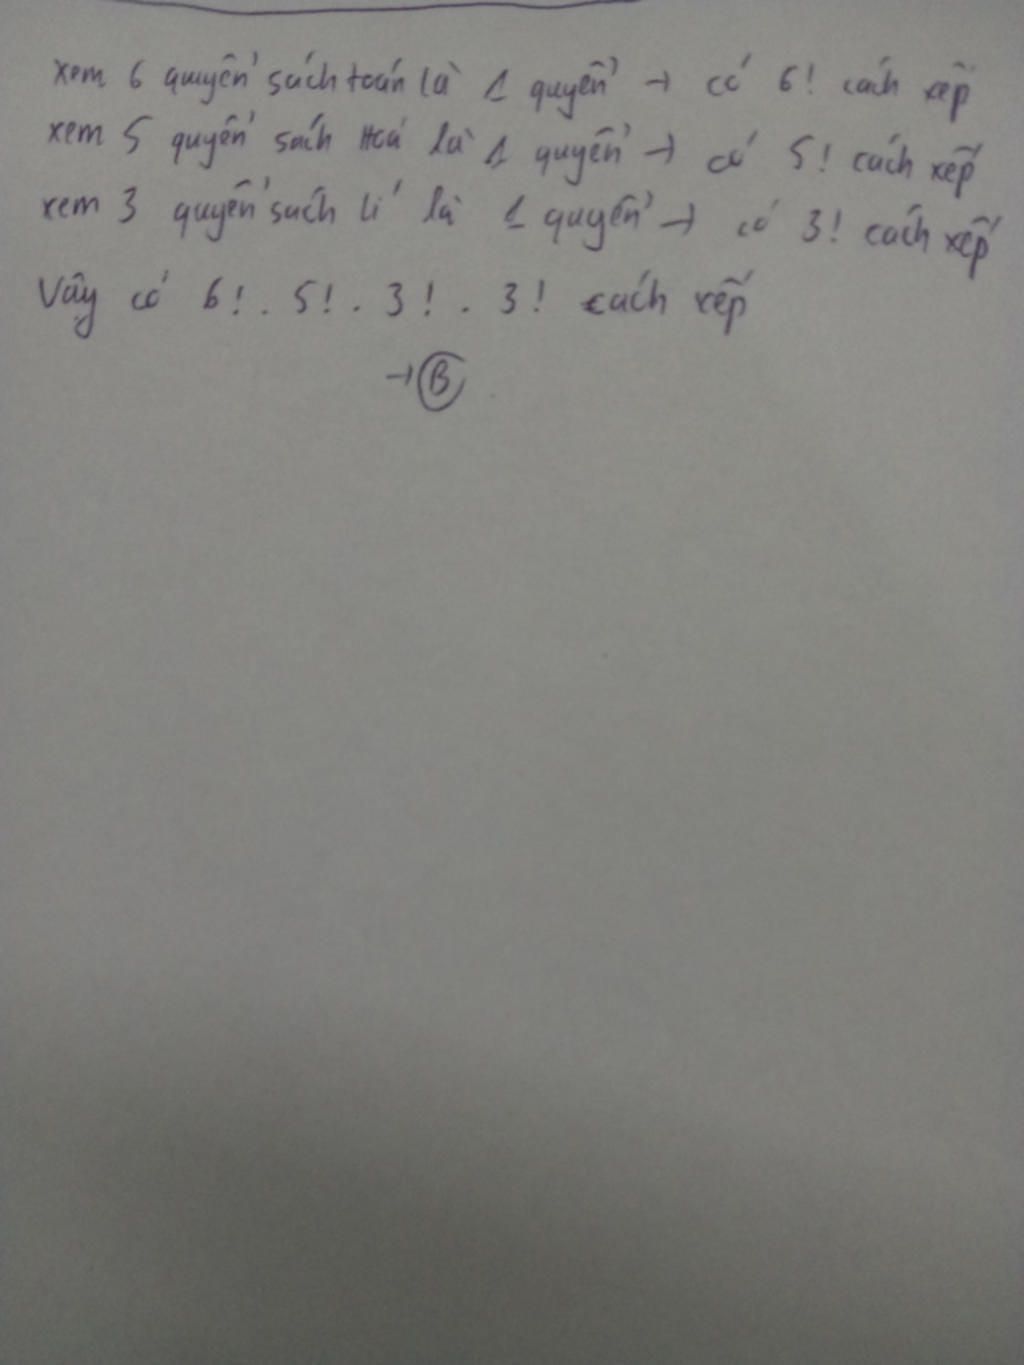 xem 6 quyển sách toán là 1 quyển → có 6! cách xếp
xem 5 quyển sách Hoá là 1 quyển → có 5! cách xếp
xem 3 quyển sách lí là 1 quyển → có 3! cách xếp
Vậy có 6! . 5! . 3! . 3! cách xếp
→ B